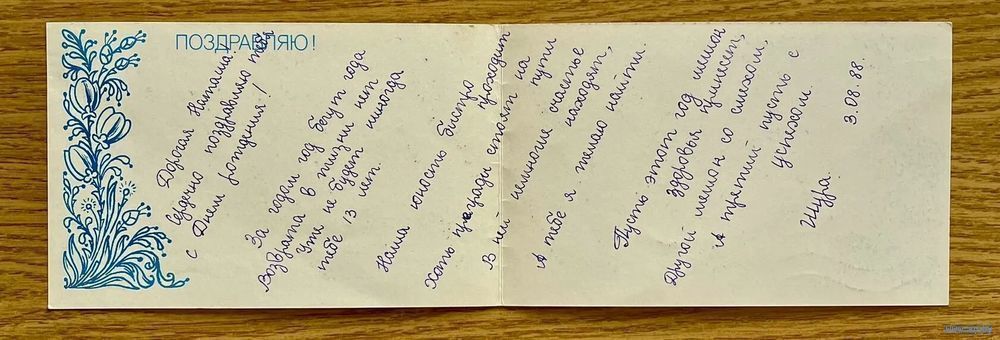 ПОЗДРАВЛЯЮ!
Дорогая Наташа,
сердечно поздравляю тебя
с Днем рождения!
За годом год бегут года
Возврата в жизни нет
Уже не будет никогда
тебе 13 лет.
Наша юность быстро проходит
хоть преграды стоят на пути
В ней немногие счастье находят,
А тебе я желаю найти.
Пусть этот год мешок
здоровья принесет,
Другой мешок со смехом,
А третий пусть с
успехом.
Шура.
3.08.88.